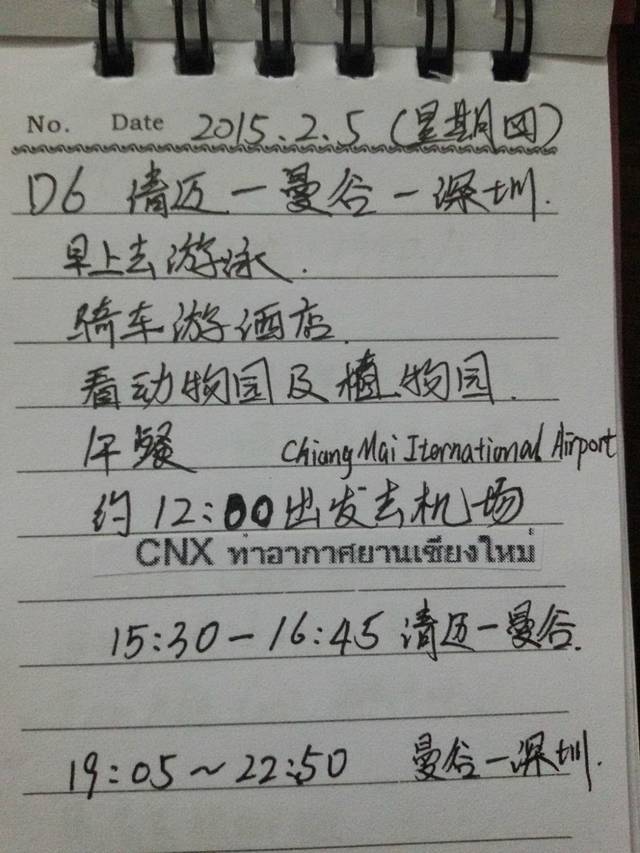 No. Date 2015.2.5 (星期四)
D6 清迈一曼谷一深圳.
早上去游泳.
骑车游酒店.
看动物园及植物园.
午餐 Chiang Mai Iternational Airport
约12:00出发去机场
CNX ท่าอากาศยานเชียงใหม่
15:30-16:45 清迈一曼谷.
19:05~22:50 曼谷一深圳.